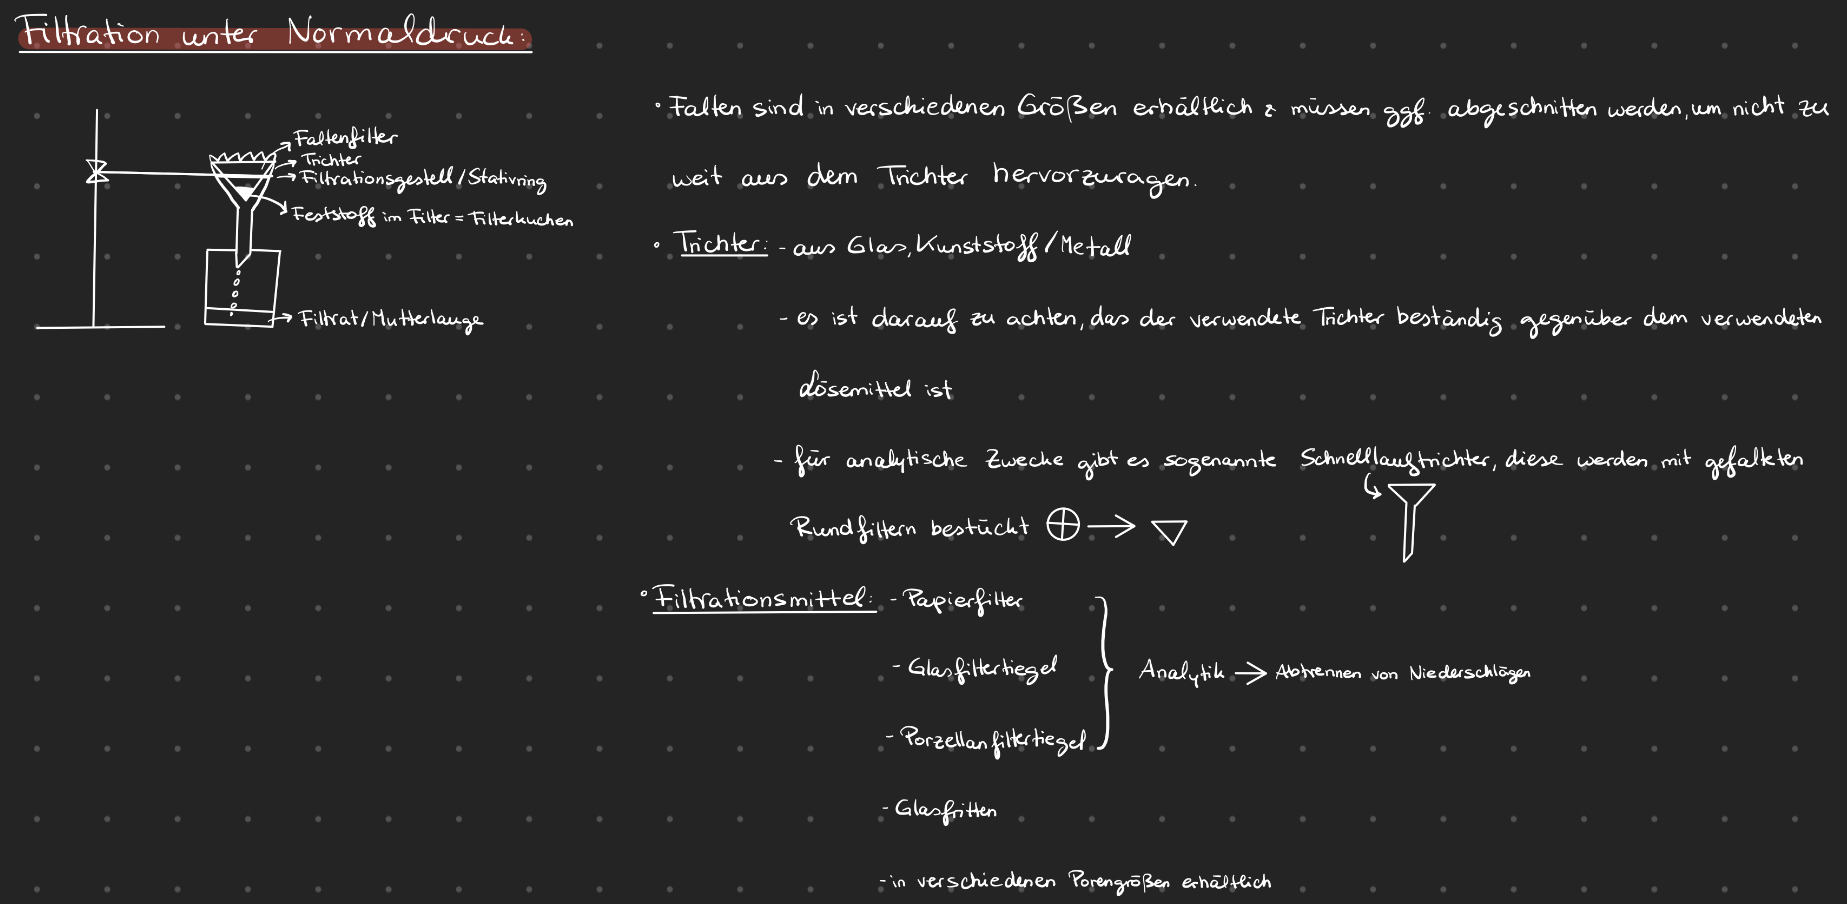 Filtration unter Normaldruck:
Faltenfilter
Trichter
Filtrationsgestell/Stativring
Feststoff im Filter = Filterkuchen
Filtrat/Mutterlauge
• Falten sind in verschiedenen Größen erhältlich & müssen ggf. abgeschnitten werden, um nicht zu
weit aus dem Trichter hervorzuragen.
• Trichter: - aus Glas, Kunststoff/Metall
- es ist darauf zu achten, das der verwendete Trichter beständig gegenüber dem verwendeten
Lösemittel ist
- für analytische Zwecke gibt es sogenannte Schnelllauftrichter, diese werden mit gefalteten
Rundfiltern bestückt
• Filtrationsmittel: - Papierfilter
- Glasfiltertiegel
Analytik → Abtrennen von Niederschlägen
- Porzellanfiltertiegel
- Glasfritten
- in verschiedenen Porengrößen erhältlich